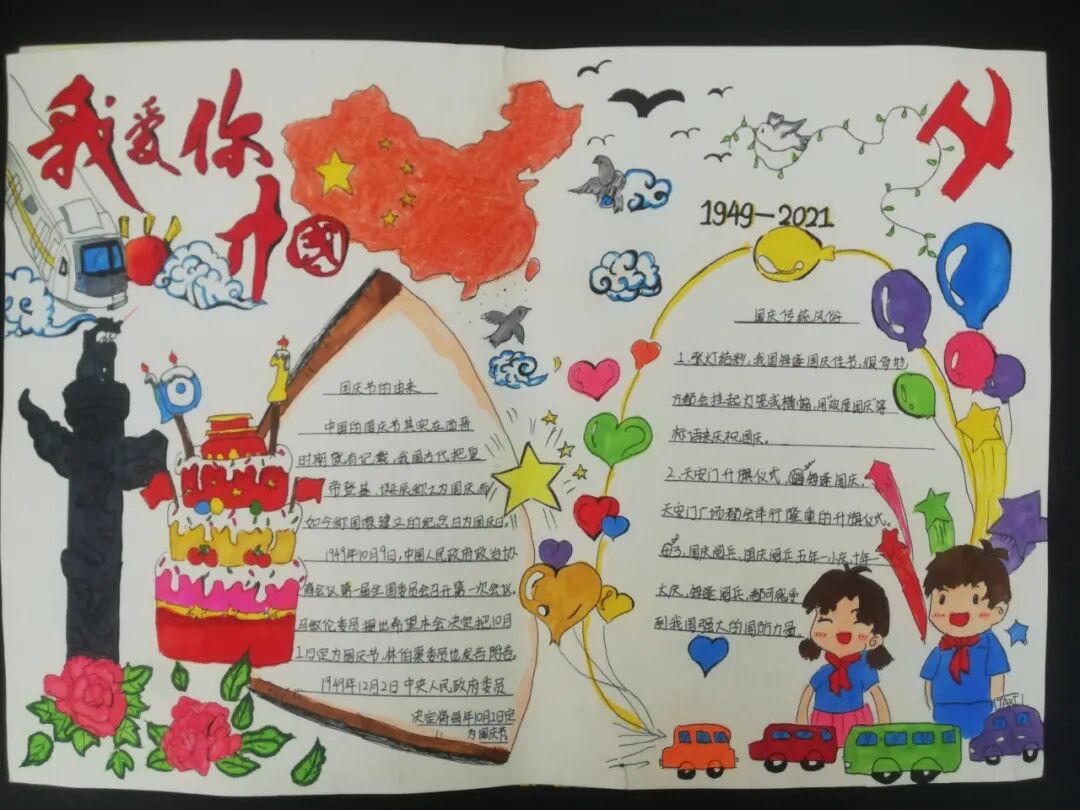 我爱你
中國
1949-2021
国庆节的由来
中国的国庆节其实在西晋
时期就有记载,我国古代把皇
帝登基、诞辰称之为国庆而
如今称国家建立的纪念日为国庆日。
1949年10月9日,中国人民政府政治协
商会议第一届全国委员会召开第一次会议,
马叙伦委员提出希望本会决定把10月
1日定为国庆节,林伯渠委员也发言附言。
1949年12月2日中央人民政府委员
决定将每年10月2日定
为国庆节。
国庆传统风俗
1、张灯结彩,我国每逢国庆佳节,很多地
方都会挂起灯笼或横幅,用"欢度国庆"等
标语来庆祝国庆。
2、天安门升旗仪式,每逢国庆,
天安门广场都会举行隆重的升旗仪式。
3、国庆阅兵,国庆阅兵五年一小庆,十年一
大庆,每逢阅兵,都可感受
到我国强大的国防力量。
TAXI